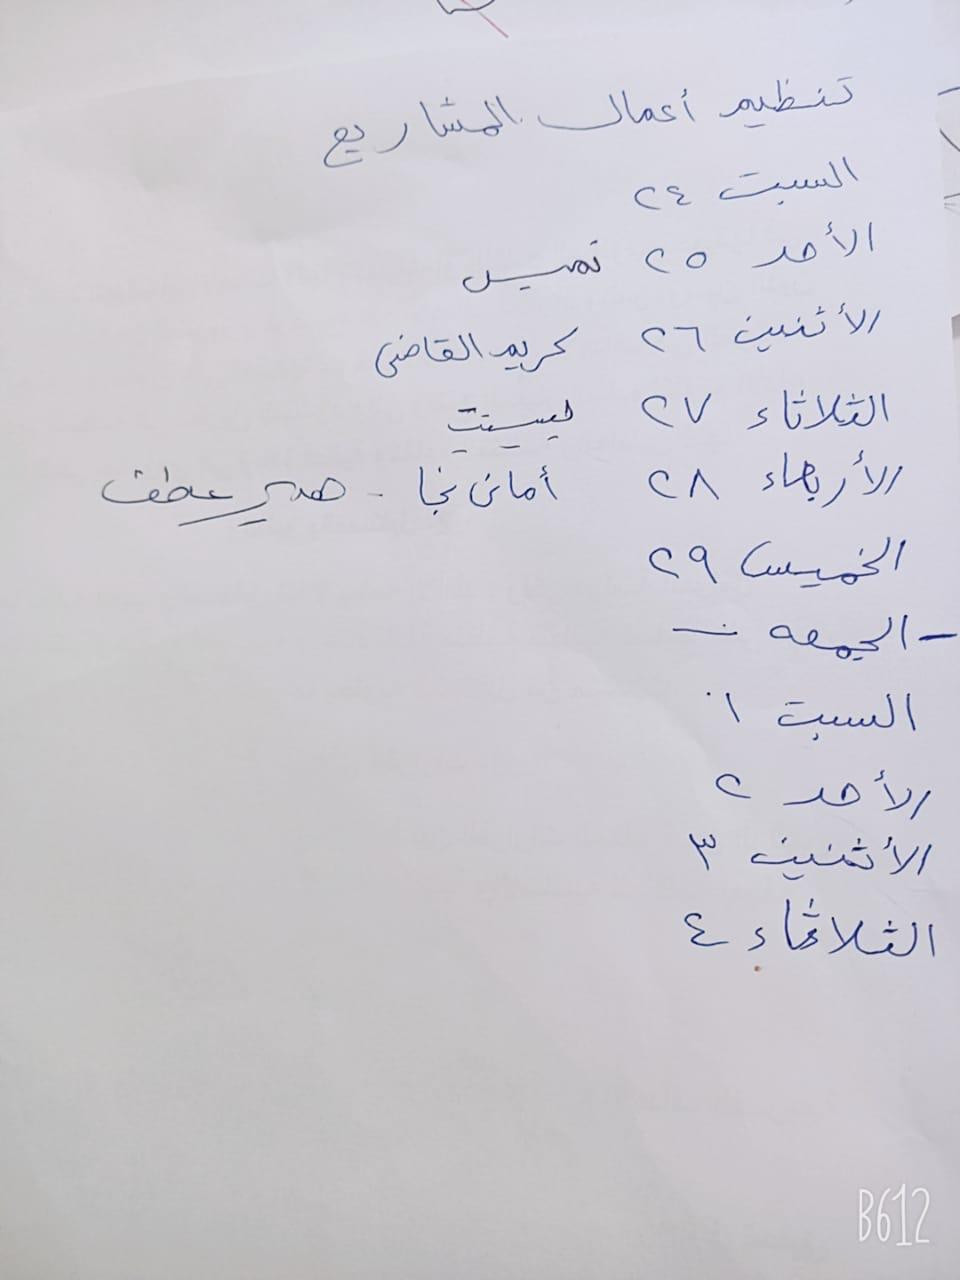 تنظيم أعمال المشاريع
السبت ٢٤
الأحد ٢٥
الأثنين ٢٦ كريم القاضى
الثلاثاء ٢٧
الأربعاء ٢٨ أمانى نجا - هدير عاطف
الخميس ٢٩
- الجمعه —
السبت ١
الأحد ٢
الأثنين ٣
الثلاثاء ٤
B612